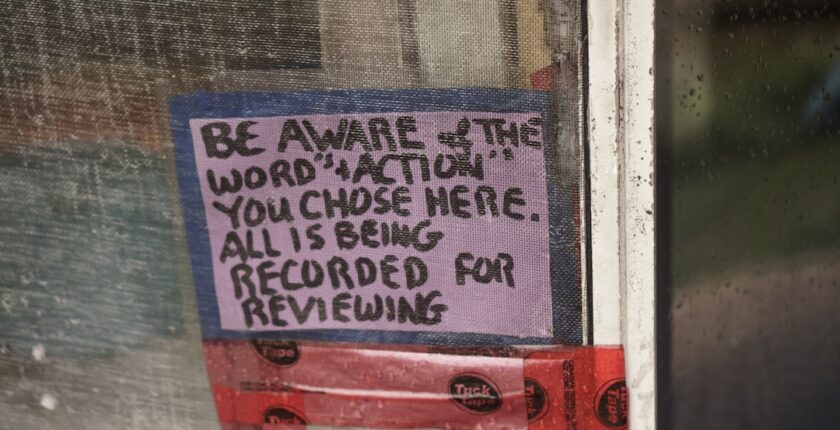 BE AWARE of THE
WORD "+ ACTION"
YOU CHOSE HERE.
ALL IS BEING
RECORDED FOR
REVIEWING
Tuck
Tape
Tuck
Tape
Tuck
Tape